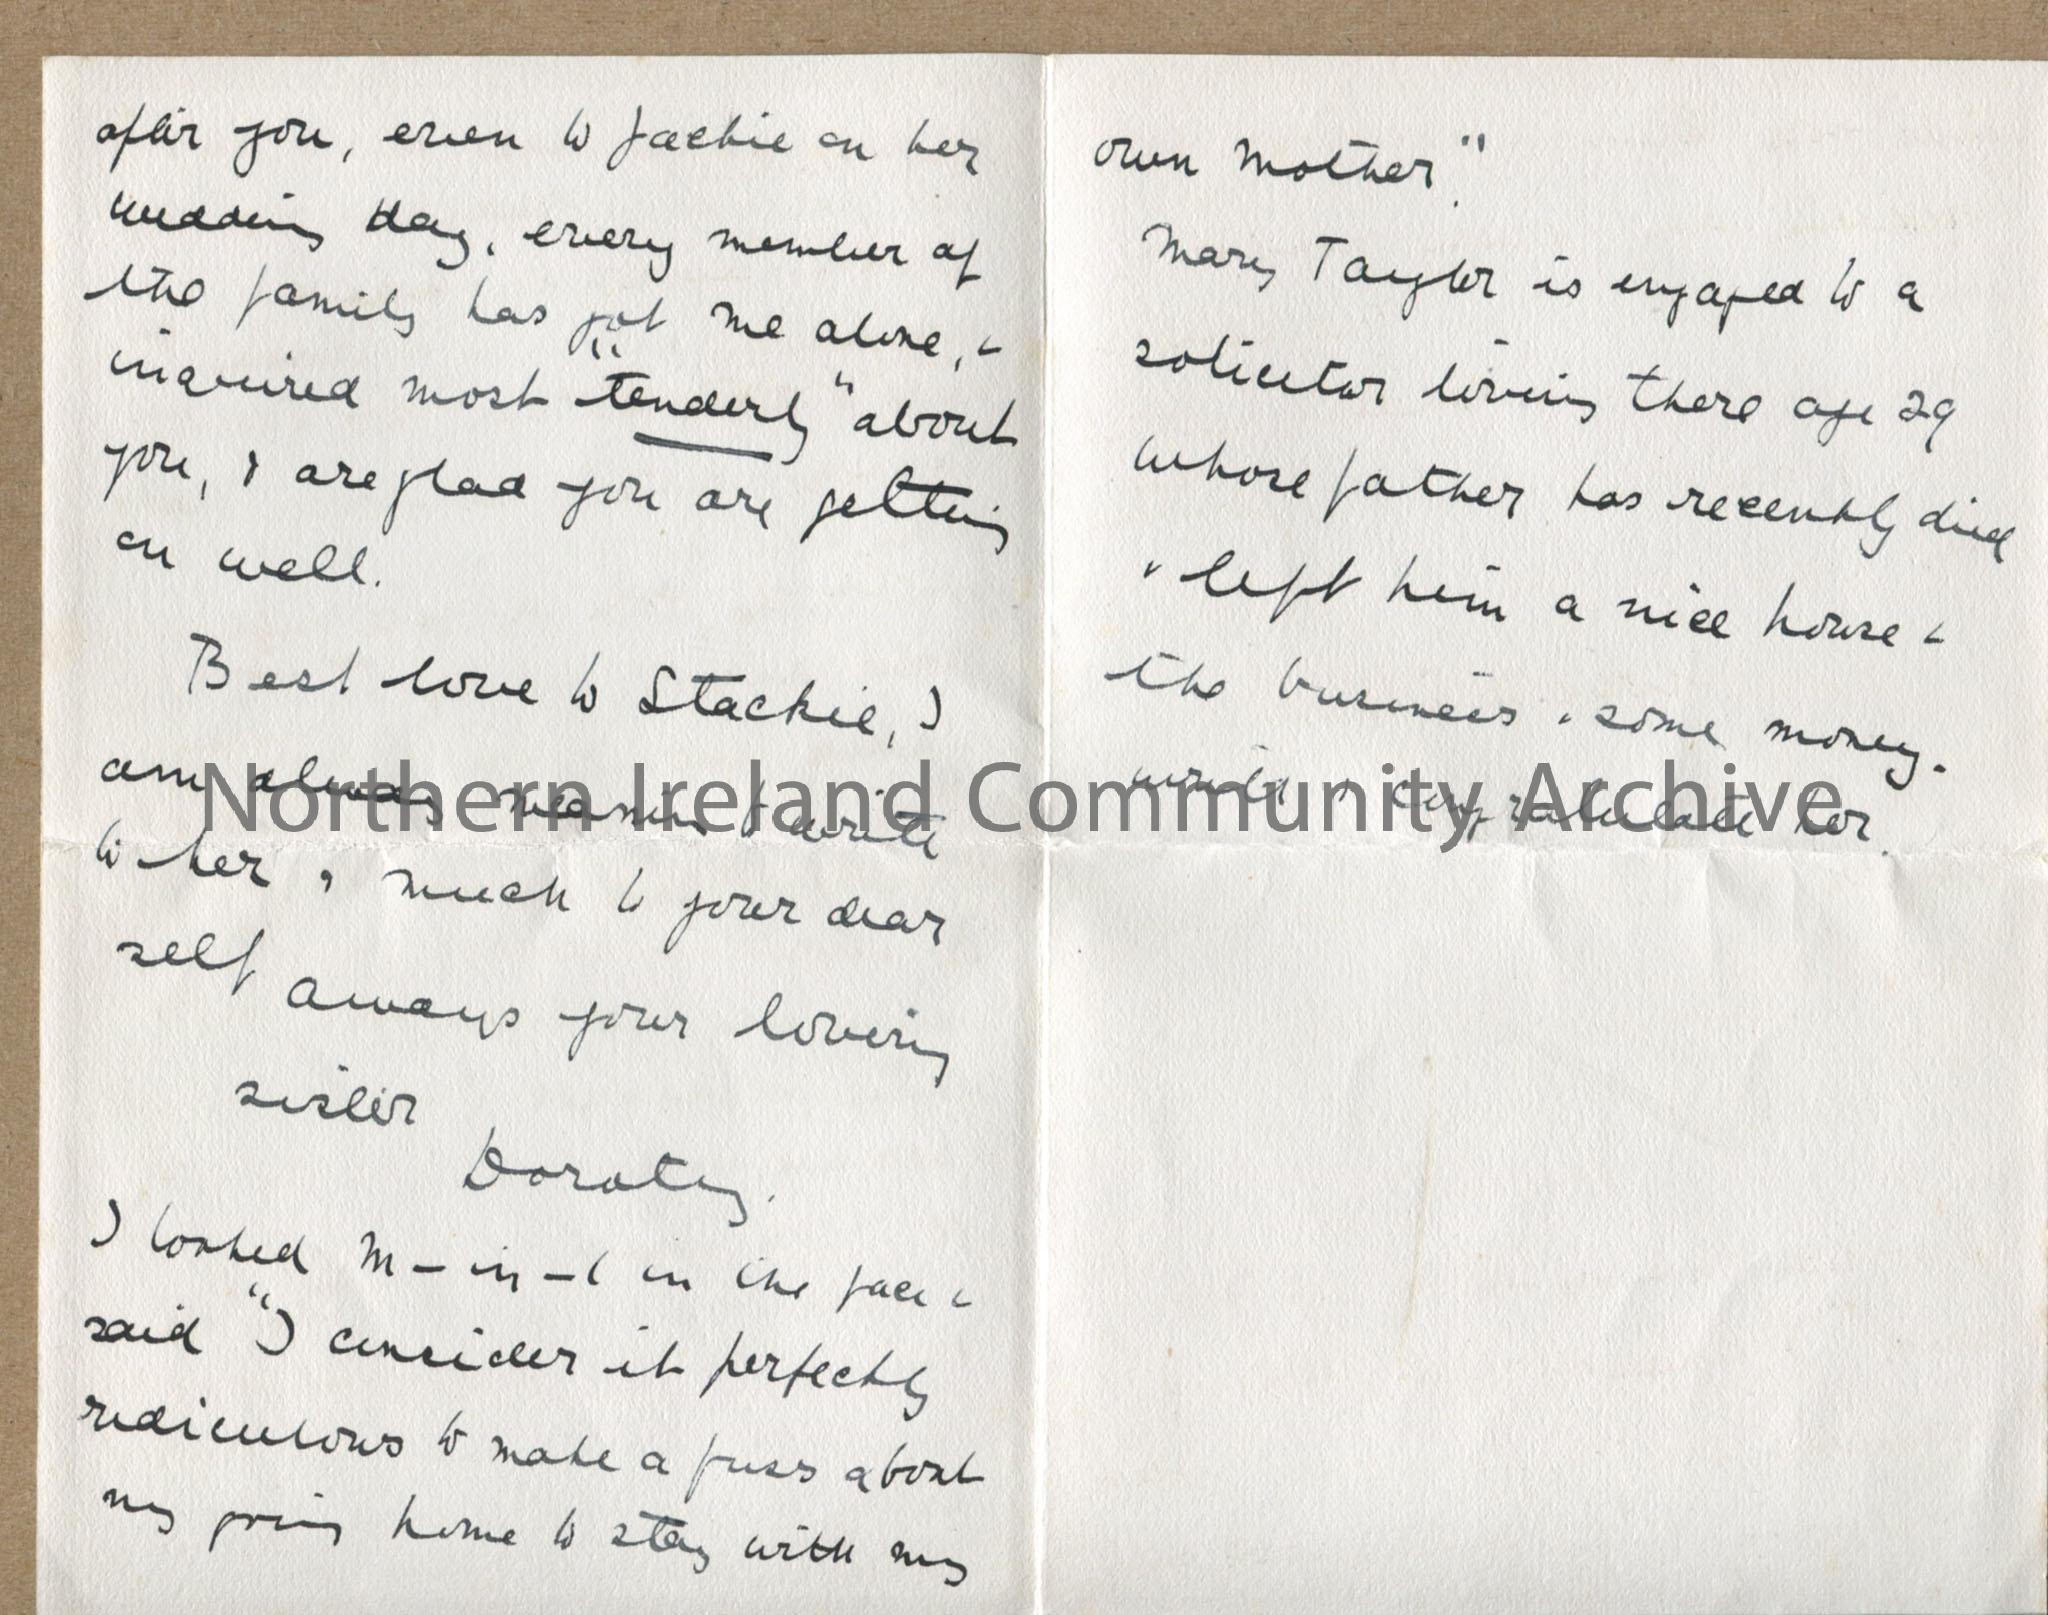 after you, even to Jackie on her
wedding day, every member of
the family has got me alone, &
inquired most "tenderly" about
you, & are glad you are getting
on well.
Best love to Stackie, I
am always meaning to write
to her & much to your dear
self always your loving
sister
Dorothy.
I looked M-in-l in the face &
said "I consider it perfectly
ridiculous to make a fuss about
my going home to stay with my
own mother".
Mary Taylor is engaged to a
solicitor living there age 29
whose father has recently died
& left him a nice house &
the business & some money.
write & congratulate her.
Northern Ireland Community Archive